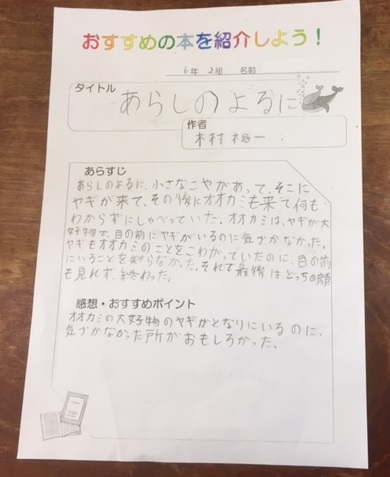 おすすめの本を紹介しよう!
6年 2組 名前
タイトル
あらしのよるに
作者
木村裕一
あらすじ
あらしのよるに、小さなこやがあって、そこに
ヤギが来て、その後にオオカミも来て何も
わからずにしゃべっていた。オオカミは、ヤギが大
好物で、目の前にヤギがいるのに気づかなかった。
ヤギもオオカミのことをこわがっていたのに、目の前
にいることを知らなかった。それで最後はどっちの顔
も見れず、終わった。
感想・おすすめポイント
オオカミの大好物のヤギがとなりにいるのに、
気づかなかった所がおもしろかった。